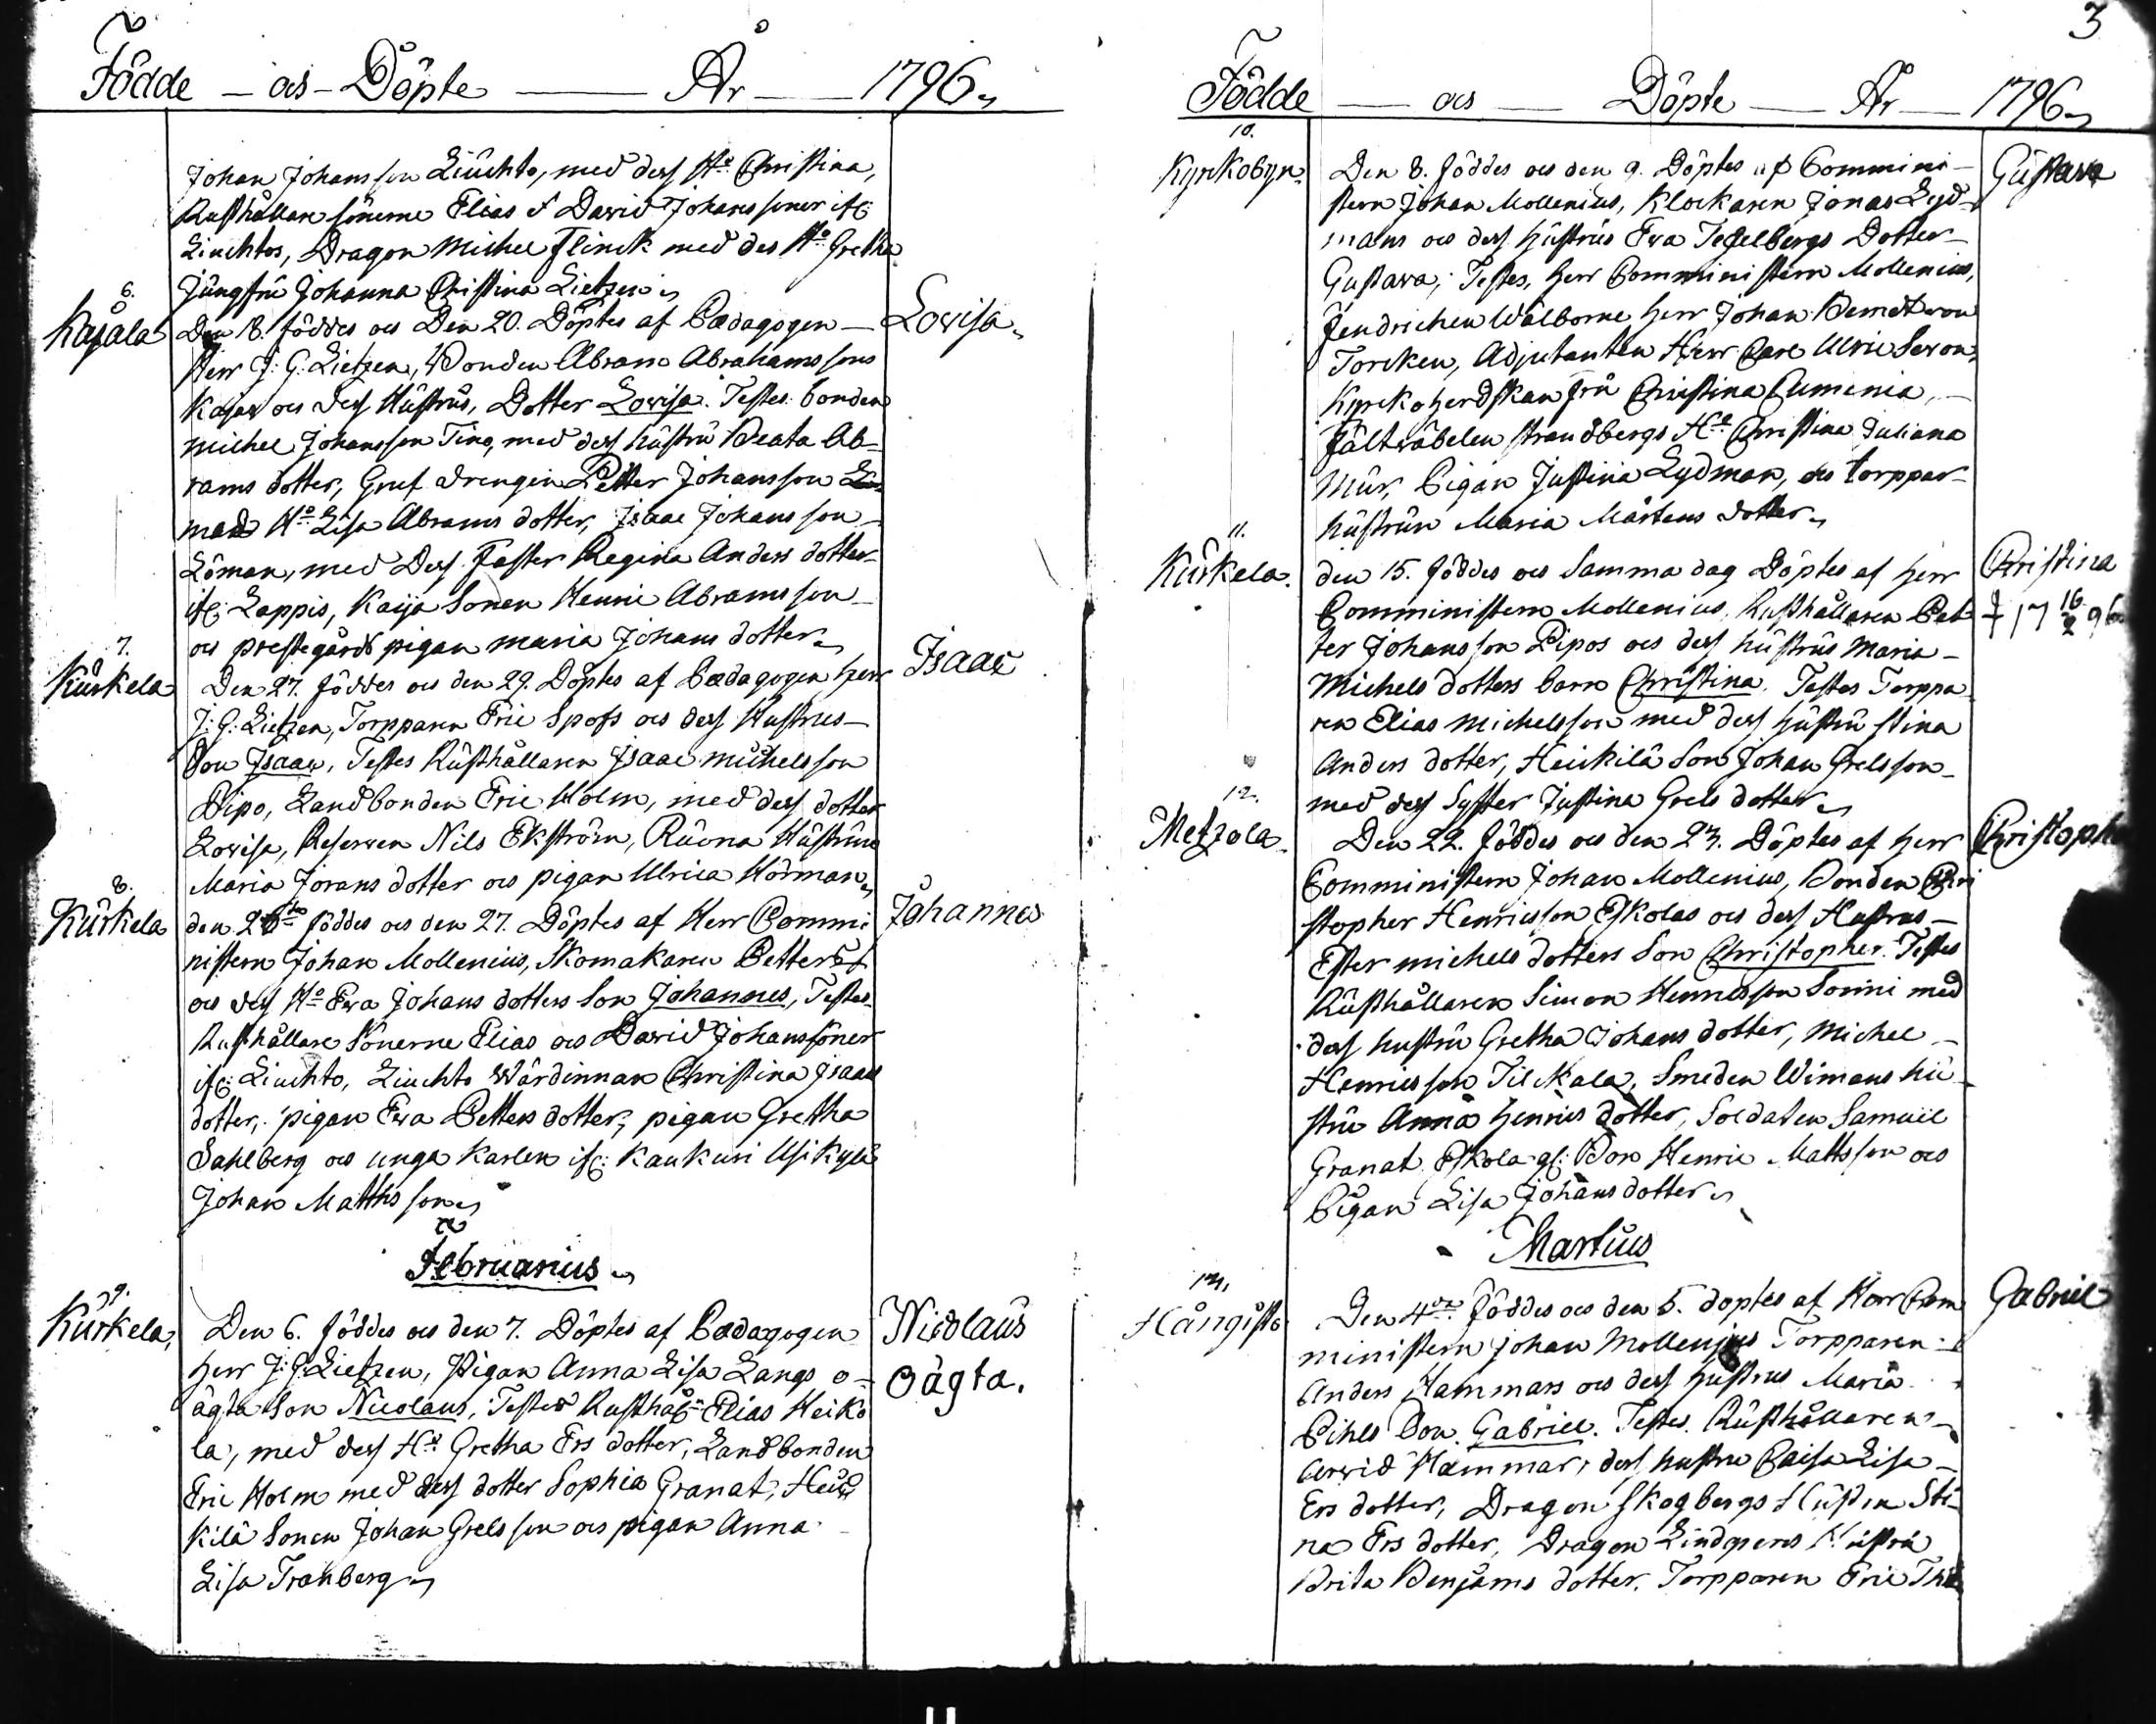 Födde – och – Döpte — År — 1796
Johan Johansson Liuchto, med dess H:o Christina,
Rusthållare sönerne Elias & David Johanssöner ifr:
Liuchtos, Dragon Michel Flinck med des H:o Gretha
Jungfru Johanna Christina Lietzen
6.
Kajala
Den 18. föddes och Den 20. Döptes af Pædagogen
Herr J: G: Lietzen, Bonden Abram Abrahamssons
Kajas och dess Hustrus, Dotter Lovisa. Testes bonden
Michel Johansson Timo, med dess hustru Beata Ab-
rams dotter, Gref drengen Petter Johansson
med H:o Lisa Abrams dotter, Isaac Johansson
Löman, med Dess Faster Regina Anders dotter
ifr: Lappis, Kaija Sonen Henric Abramsson
och prestegårds pigan Maria Johans dotter
Lovisa
7.
Kurkela
Den 27. föddes och den 29. Döptes af Pædagogen Herr
J: G: Lietzen, Torpparen Eric Spofs och dess Hustrus
Son Isaac, Testes Rusthållaren Isaac Michelsson
Pipo, Landbonden Eric Holm, med dess dotter
Lovisa, Reserven Nils Ekström, Ruona Hustrun
Maria Jorans dotter och pigan Ulrica Hörman
Isaac
8.
Kurkela
den föddes och den 27. Döptes af Herr Commi
nistern Johan Mollenius, Skomakaren Petters
och dess H:o Eva Johans dotters Son Johannes, Testes
Rusthållare Sönerne Elias och David Johanssöner
ifr: Liuchto, Liuchto Wärdinnan Christina Isaacs
dotter, pigan Eva Petters dotter, pigan Gretha
Sahlberg och unga Karlen ifr: Kaukuri Usikylä
Johan Matthsson
Johannes
Februarius
9.
Kurkela
Den 6. föddes och den 7. Döptes af Pædagogen
Herr J: G: Lietzen, Pigan Anna Lisa Langs o-
ägta Son Nicolaus, Testes Rusthåll: Elias Heiki
la, med dess H:o Gretha Ers dotter, Landbonden
Eric Holm med dess dotter Sophia Granat, Heic
kilä Sonen Johan Grelsson och pigan Anna
Lisa Tranberg
Nicolaus
oägta.
3
Födde — och — Döpte — År — 1796
10.
Kyrkobyn
Den 8. föddes och den 9. Döptes af Commini-
stern Johan Mollenius, Klockaren Jonas Lyd-
mans och dess hustrus Eva Tegelbergs Dotter
Gustava; Testes, Herr Comministern Mollenius,
Fendrichen Wälborne Herr Johan Berndt von
Torcken, Adjutanten Herr Carl Ulric Seron,
Kyrkoherdskan Fru Christina Cumenia,
Fältwäbelen Strandbergs H:o Christina Juliana
Mur, Pigan Justina Lydman, och torppar
hustrun Maria Mårtens dotter
Gustava
11.
Kurkela.
den 15. föddes och Samma dag Döptes af Herr
Comministern Mollenius, Rusthållaren Pet
ter Johansson Pipos och dess hustrus Maria
Michels dotters barn Christina. Testes Torppa
ren Elias Michelsson med dess hustru Stina
Anders dotter, Heickilä Son Johan Grelsson
med dess Syster Justina Grels dotter
Christina
† 17 16/2 96
12.
Metzola
Den 22. föddes och den 23. Döptes af Herr
Comministern Johan Mollenius, Bonden Chri
stopher Henricsson Eskolas och dess Hustrus
Ester Michels dotters Son Christopher. Testes
Rusthållaren Simon Henricsson Sonni med
dess hustru Gretha Johans dotter, Michel
Henricsson Tilckala, Smeden Wimans hu
stru Anna Henrics dotter, Soldaten Samuel
Granat, Eskola Son Henric Mattsson och
Pigan Lisa Johans dotter
Christoph
Martius
13.
Hångisto
Den 4:de föddes och den 5. döptes af Herr Com
ministern Johan Mollenius Torpparen
Anders Hammars och dess hustrus Maria
Pihls Son Gabriel. Testes. Rusthållaren
Arvid Hammar, dess hustru Caisa Lisa
Ers dotter, Dragon Skogbergs Hustru Sti-
na Ers dotter, Dragon Lindqvists Hustru
Brita Benjams dotter. Torpparen Eric
Gabriel